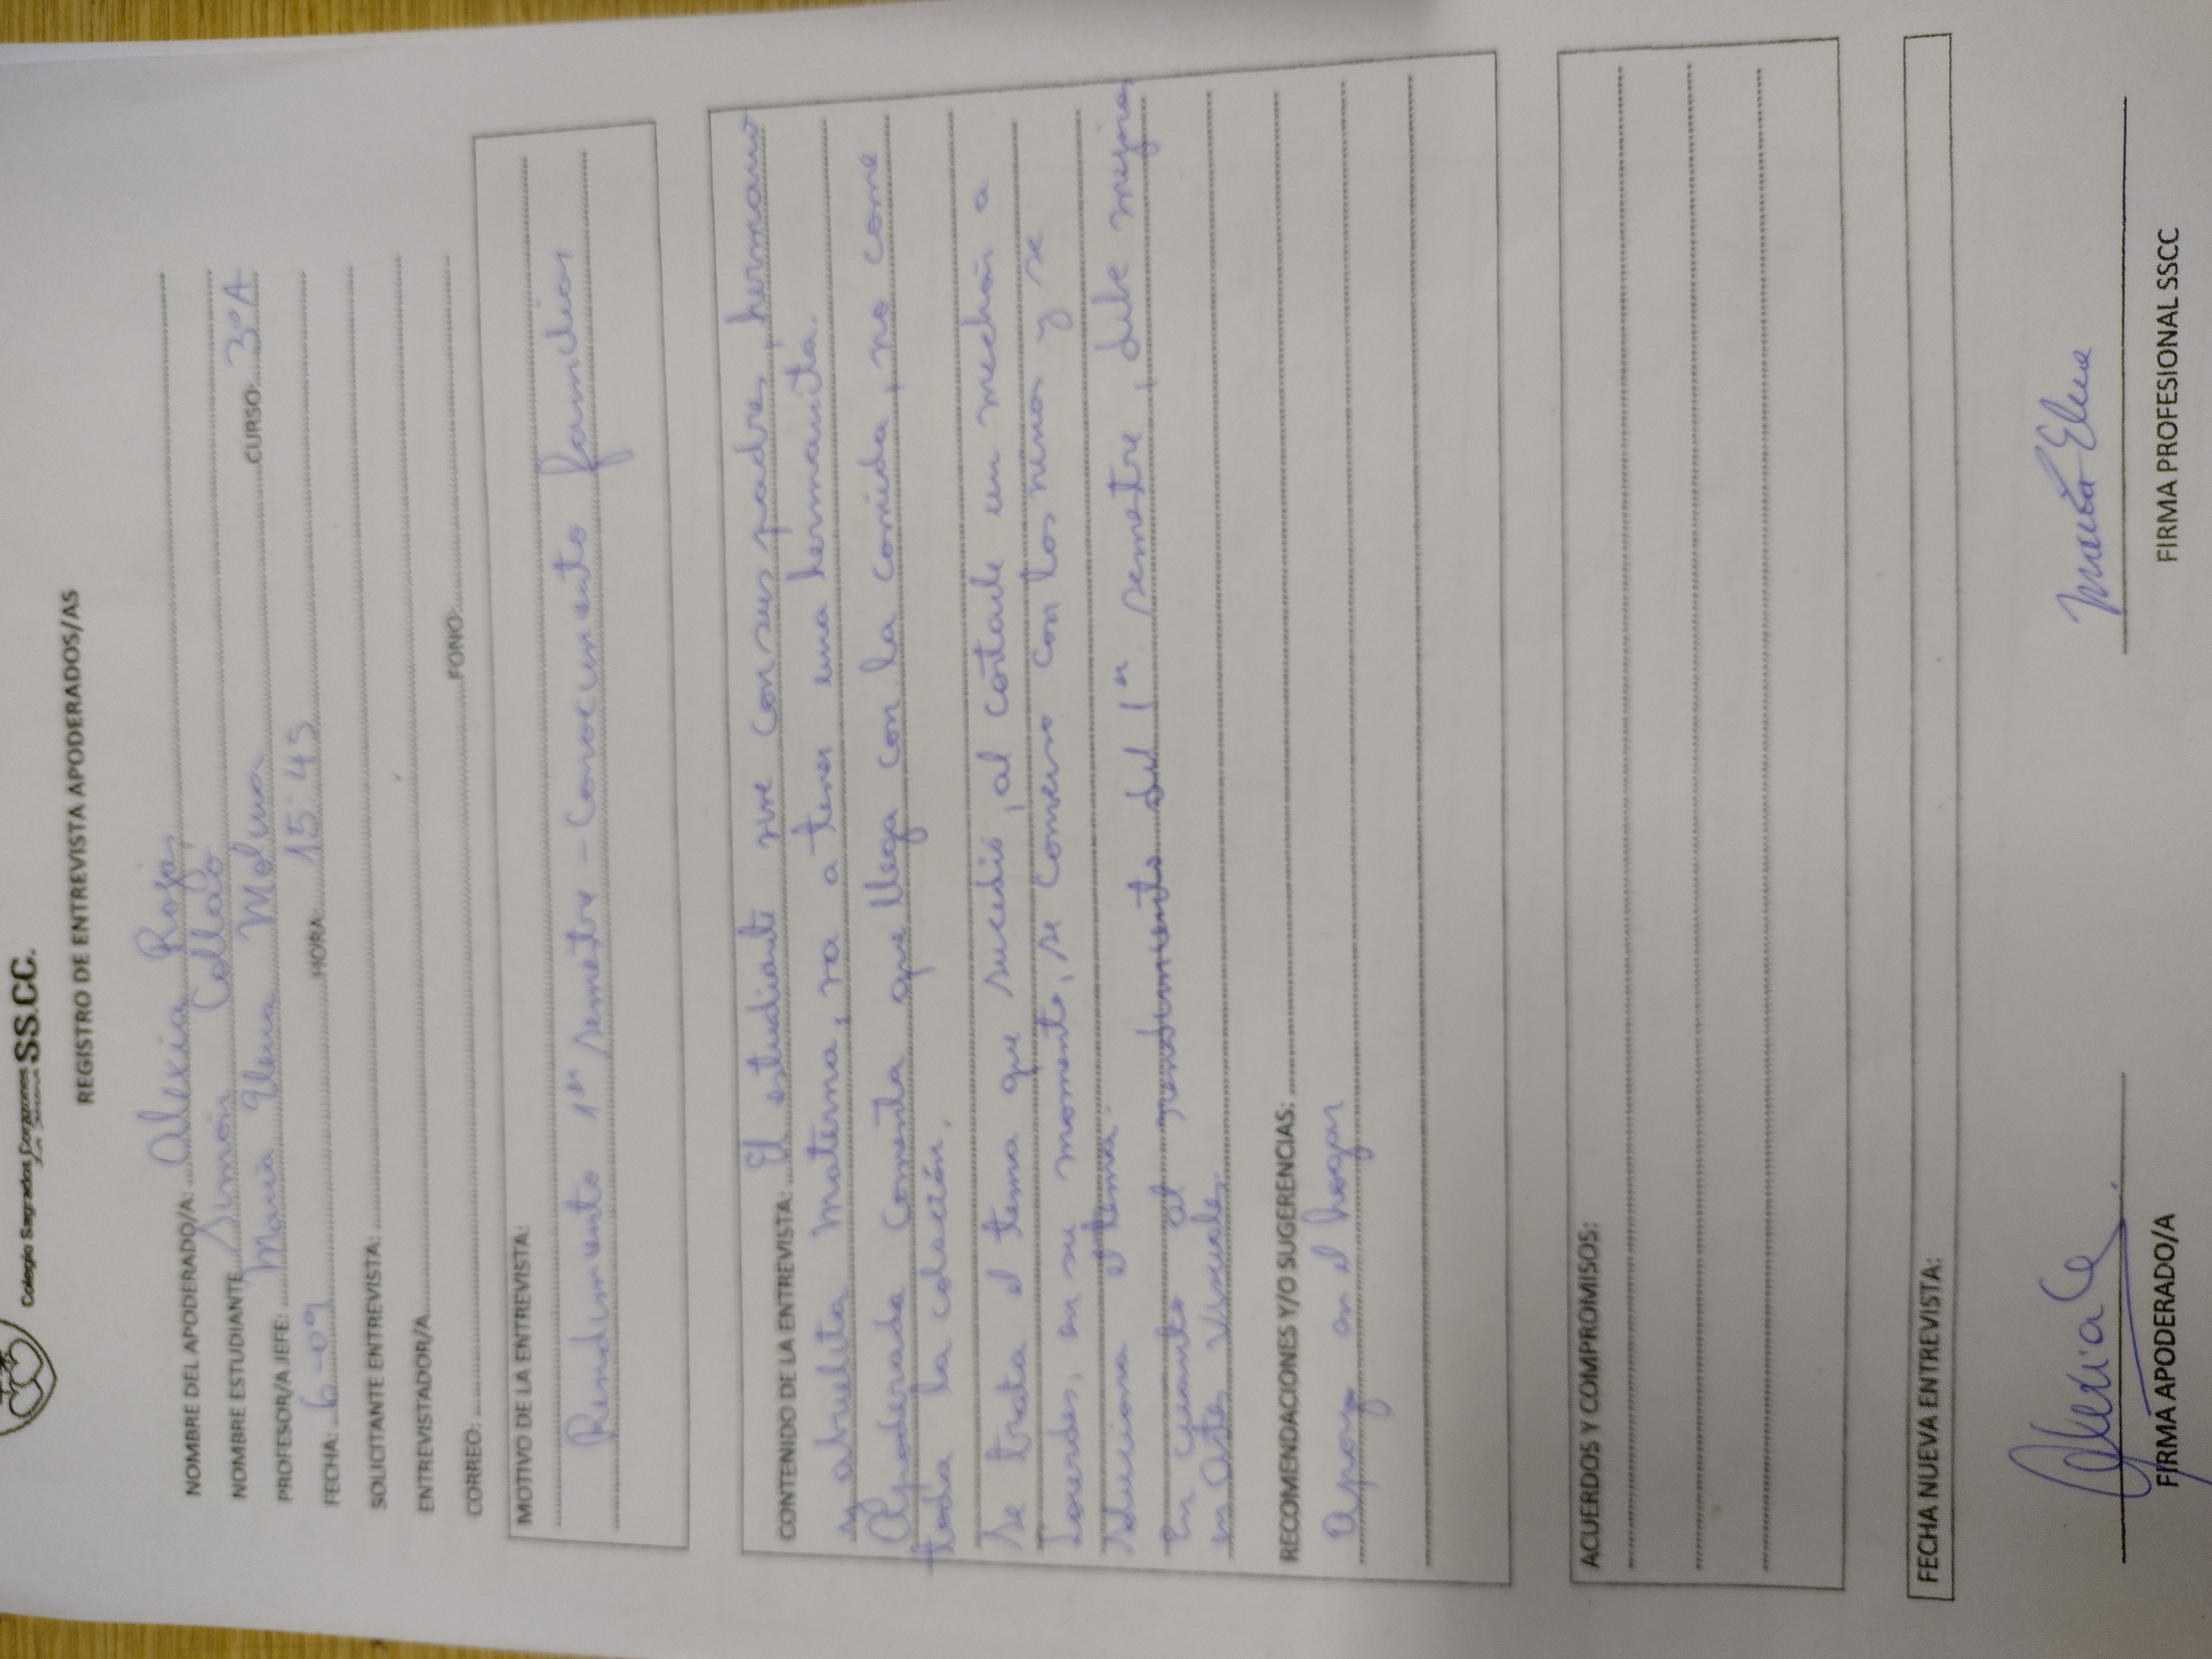 Colegio Sagrados Corazones SS.CC.
REGISTRO DE ENTREVISTA APODERADOS/AS
NOMBRE DEL APODERADO/A: Alexia Rojas
NOMBRE ESTUDIANTE Simón Collao CURSO 3ºA
PROFESOR/A JEFE: María Elena Molina
FECHA: 6-09 HORA 15:45
SOLICITANTE ENTREVISTA:
ENTREVISTADOR/A
CORREO: FONO
MOTIVO DE LA ENTREVISTA:
Rendimiento 1er semestre - Conocimiento familiar
CONTENIDO DE LA ENTREVISTA: El estudiante vive con sus padres, hermano
y abuelita materna, va a tener una hermanita.
Apoderada comenta que llega con la comida, no come
toda la colación.
Se trata el tema que sucedió, al cortarle un mechón a
Lourdes, en su momento, se conversó con los niños y se
soluciona el tema.
En cuanto al rendimiento del 1er semestre, debe mejorar
en Artes Visuales
RECOMENDACIONES Y/O SUGERENCIAS:
Apoyo en el hogar
ACUERDOS Y COMPROMISOS:
FECHA NUEVA ENTREVISTA:
Alexia María Elena
FIRMA APODERADO/A FIRMA PROFESIONAL SSCC